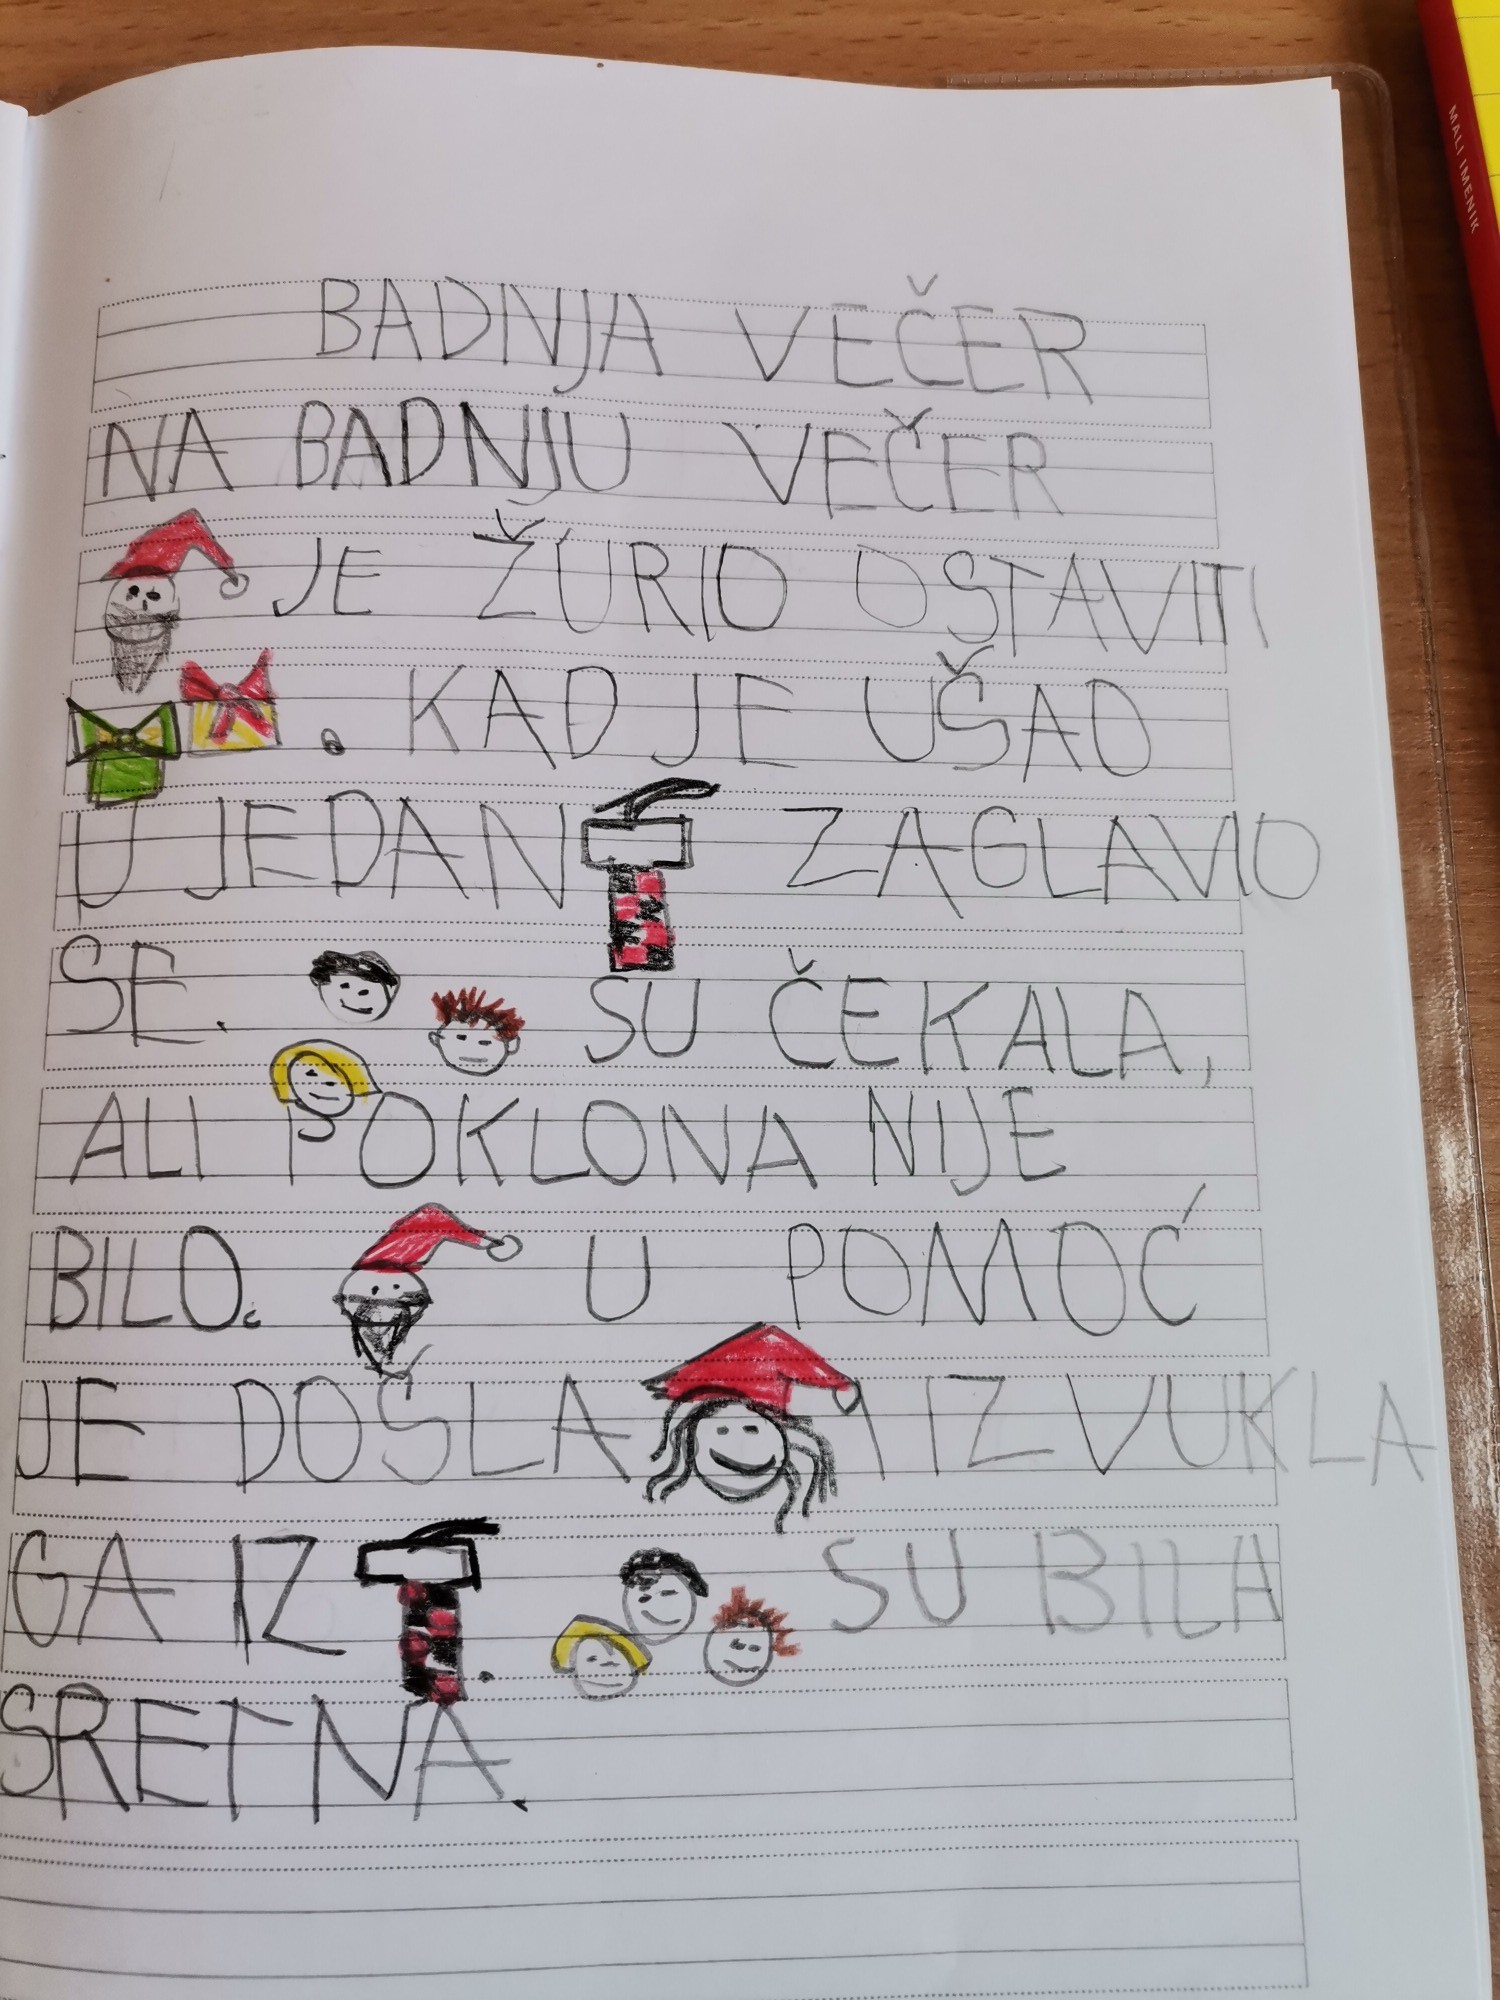 BADNJA VEČER
NA BADNJU VEČER
JE ŽURIO OSTAVITI
. KAD JE UŠAO
U JEDAN ZAGLAVIO
SE. SU ČEKALA,
ALI POKLONA NIJE
BILO. U POMOĆ
JE DOŠLA I IZVUKLA
GA IZ . SU BILA
SRETNA.
MALI IMENIK